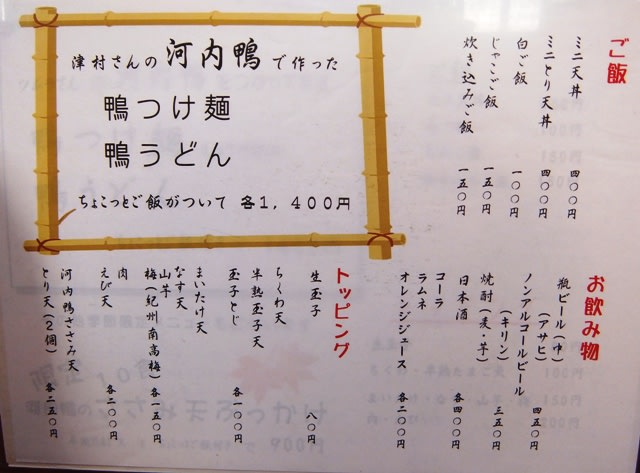 津村さんの 河内鴨 で作った
鴨つけ麺
鴨うどん
ちょこっとご飯がついて 各1,400円
ご飯
ミニ天丼 四〇〇円
ミニとり天丼 四〇〇円
白ご飯 一〇〇円
じゃこご飯 一五〇円
炊き込みご飯 一五〇円
お飲み物
瓶ビール(中)
(アサヒ) 四五〇円
ノンアルコールビール
(キリン) 三五〇円
焼酎(麦・芋)
日本酒 各四〇〇円
コーラ
ラムネ
オレンジジュース 各二〇〇円
トッピング
生玉子 八〇円
ちくわ天
半熟玉子天
玉子とじ 各一〇〇円
まいたけ天
なす天
山芋
梅(紀州南高梅) 各一五〇円
肉
えび天 各二〇〇円
河内鴨ささみ天
とり天(2個) 各二五〇円